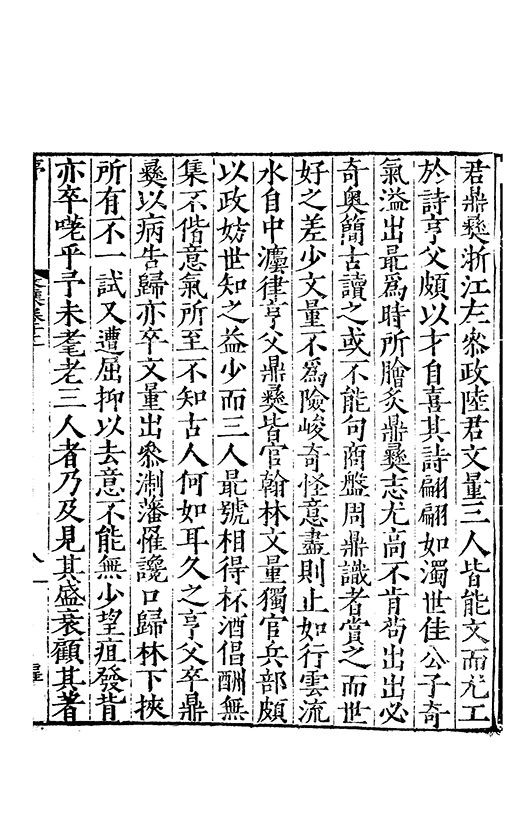 君鼎彝浙江左叅政陸君文量三人皆能文而尤工
於詩亨父頗以才自喜其詩翩翩如濁世佳公子奇
氣溢出最爲時所膾炙鼎彝志尤高不肯茍出出必
奇奥簡古讀之或不能句商盤周鼎識者賞之而世
好之差少文量不爲險峻奇怪意盡則止如行雲流
水自中灋律亨父鼎彝皆官翰林文量獨官兵部頗
以政妨世知之益少而三人最號相得杯酒倡酬無
集不偕意氣所至不知古人何如耳久之亨父卒鼎
彝以病告歸亦卒文量出叅淛藩罹讒口歸林下挾
所有不一試又遭屈抑以去意不能無少望疽發背
亦卒嗟乎予未耄老三人者乃及見其盛衰顧其著
序
八